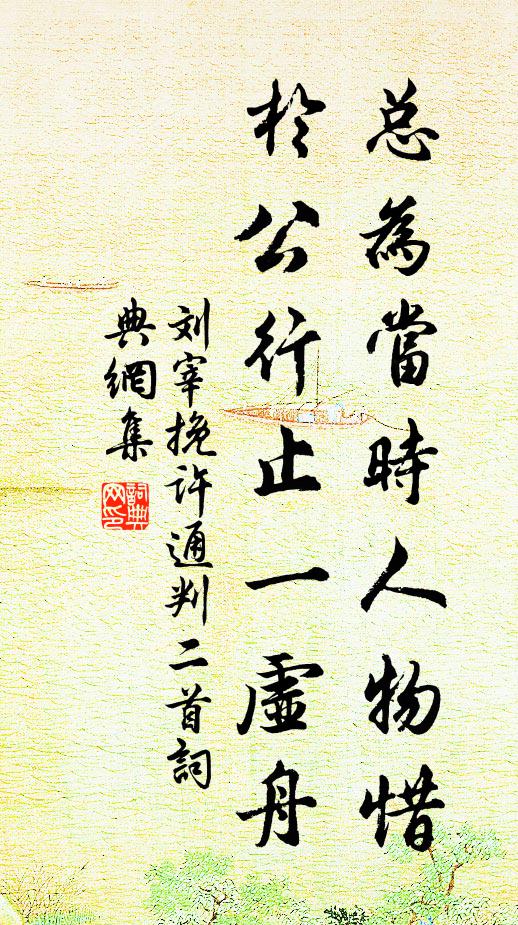 总為當時人物惜
於公行止一虛舟
刘宰挽许通判二首詞
典網集
詞典
网印